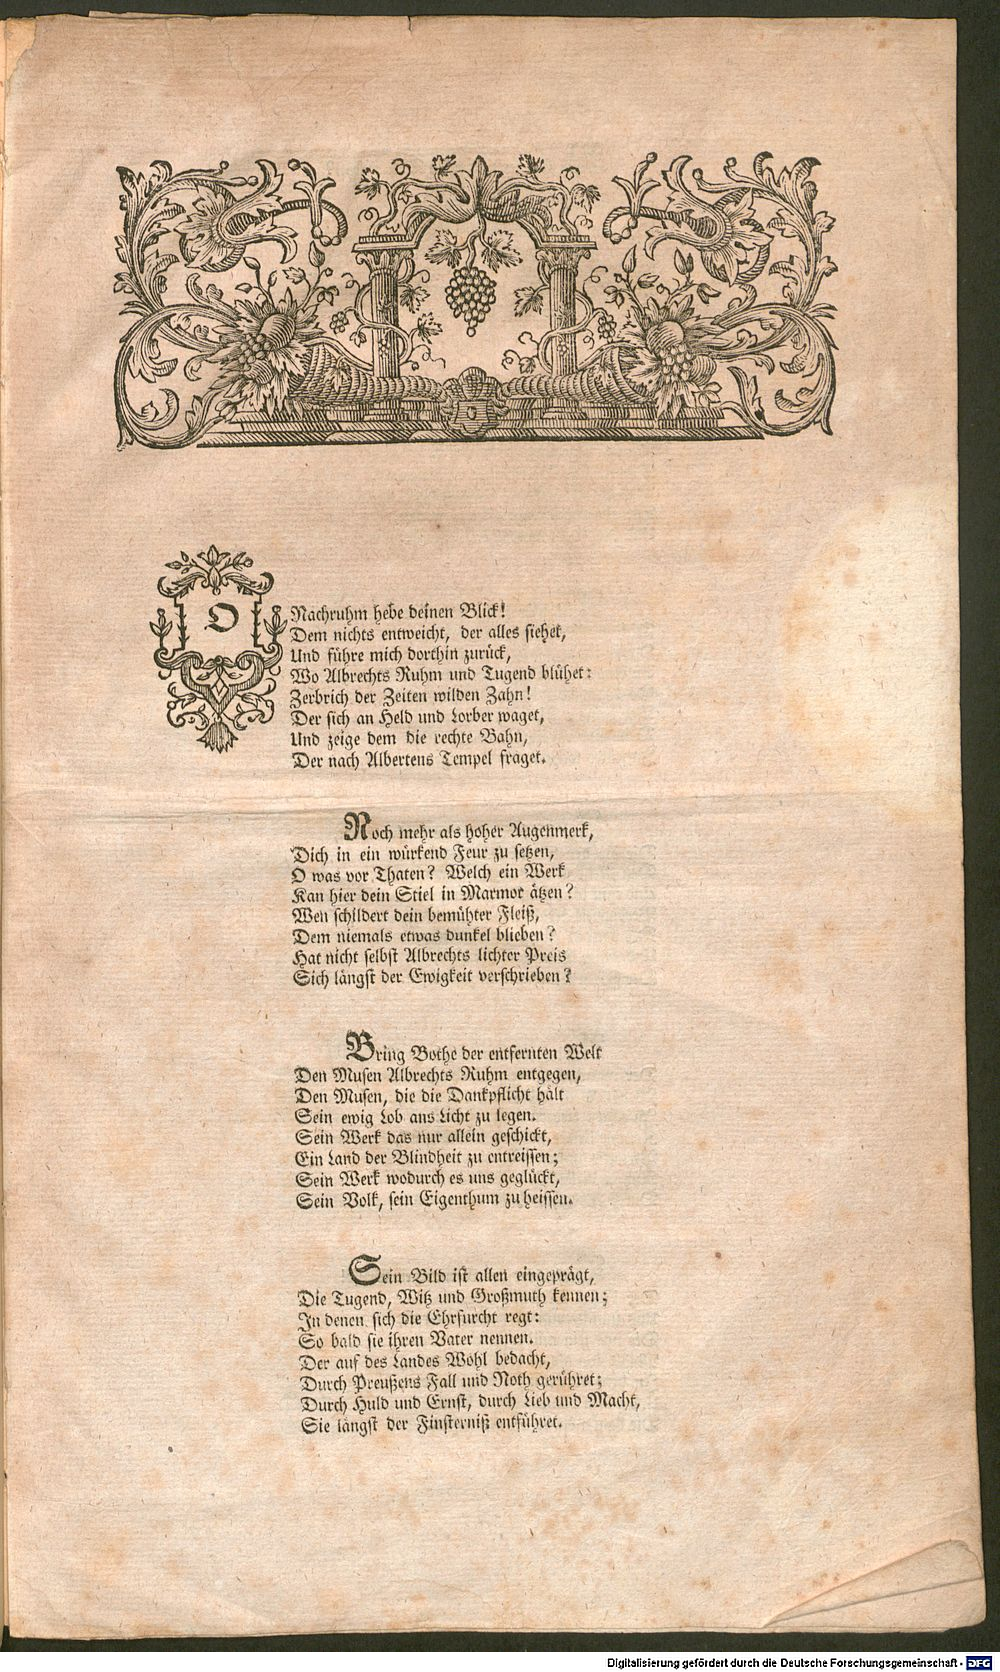 O
Nachruhm hebe deinen Blick!
Dem nichts entweicht, der alles siehet,
Und führe mich dorthin zurück,
Wo Albrechts Ruhm und Tugend blühet:
Zerbrich der Zeiten wilden Zahn!
Der sich an Held und Lorber waget,
Und zeige dem die rechte Bahn,
Der nach Albertens Tempel fraget.
Noch mehr als hoher Augenmerk,
Dich in ein würkend Feur zu setzen,
O was vor Thaten? Welch ein Werk
Kan hier dein Stiel in Marmor ätzen?
Wen schildert dein bemühter Fleiß,
Dem niemals etwas dunkel blieben?
Hat nicht selbst Albrechts lichter Preis
Sich längst der Ewigkeit verschrieben?
Bring Bothe der entfernten Welt
Den Musen Albrechts Ruhm entgegen,
Den Musen, die die Dankpflicht hält
Sein ewig Lob ans Licht zu legen.
Sein Werk das nur allein geschickt,
Ein Land der Blindheit zu entreissen;
Sein Werk wodurch es uns geglückt,
Sein Volk, sein Eigenthum zu heissen.
Sein Bild ist allen eingeprägt,
Die Tugend, Witz und Großmuth kennen;
In denen sich die Ehrfurcht regt:
So bald sie ihren Vater nennen.
Der auf des Landes Wohl bedacht,
Durch Preußens Fall und Noth gerühret;
Durch Huld und Ernst, durch Lieb und Macht,
Sie längst der Finsterniß entführet.
Digitalisierung gefördert durch die Deutsche Forschungsgemeinschaft - DFG